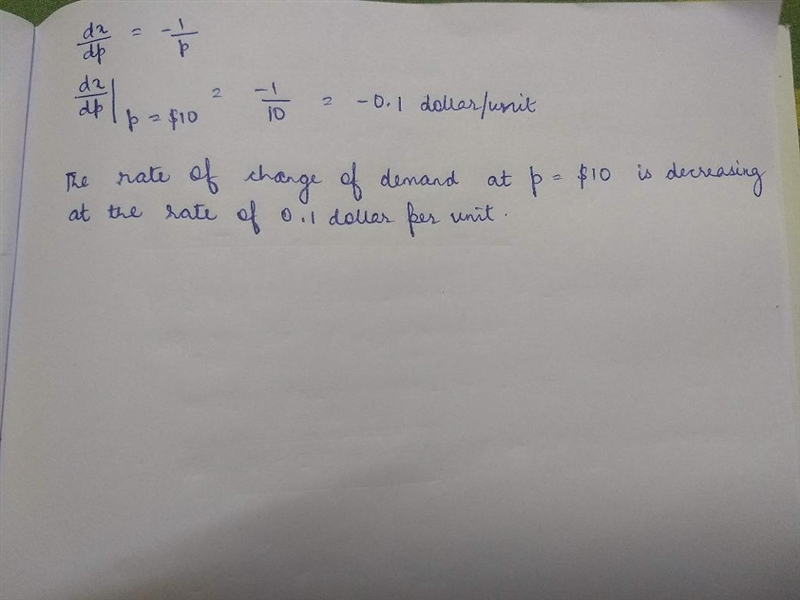 dx/dp = -1/p
dx/dp | p = $10 = -1/10 = -0.1 dollar/unit
The rate of change of demand at p = $10 is decreasing
at the rate of 0.1 dollar per unit.